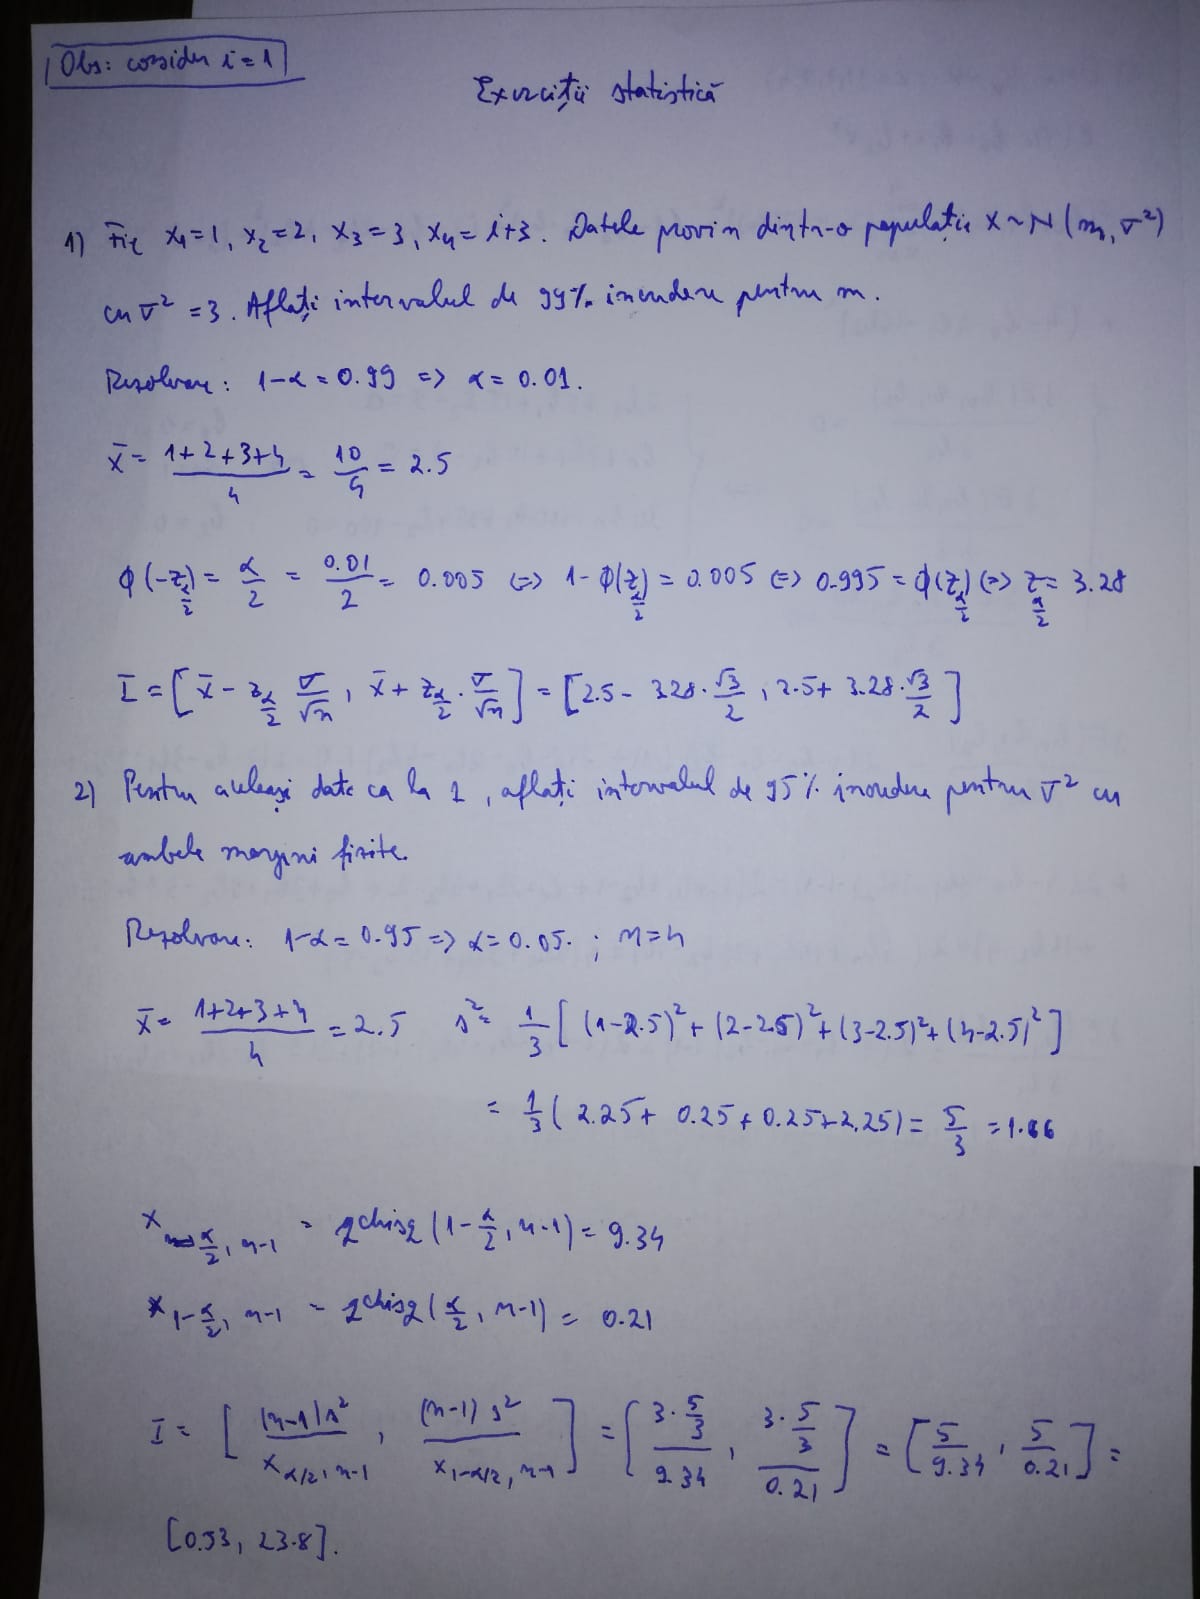 Obs: consider i=1
Exerciții statistică
1) Fie x₁=1, x₂=2, x₃=3, x₄=i+3. Datele provin dintr-o populație X~N(m, σ²)
cu σ²=3. Aflați intervalul de 99% încredere pentru m.
Rezolvare: 1-α=0.99 => α=0.01.
x̄ = (1+2+3+4)/4 = 10/4 = 2.5
Φ(-z_{α/2}) = α/2 = 0.01/2 = 0.005 <=> 1-Φ(z_{α/2}) = 0.005 <=> 0.995 = Φ(z_{α/2}) <=> z_{α/2} = 3.28
I = [x̄ - z_{α/2} σ/√n, x̄ + z_{α/2} · σ/√n] = [2.5 - 3.28 · √3/2, 2.5 + 3.28 · √3/2]
2) Pentru aceleași date ca la 1, aflați intervalul de 95% încredere pentru σ² cu
ambele margini finite.
Rezolvare: 1-α=0.95 => α=0.05. ; n=4
x̄ = (1+2+3+4)/4 = 2.5 s² = 1/3 [(1-2.5)² + (2-2.5)² + (3-2.5)² + (4-2.5)²]
= 1/3 (2.25 + 0.25 + 0.25 + 2.25) = 5/3 = 1.66
x_{α/2, n-1} = qchisq(1-α/2, n-1) = 9.34
x_{1-α/2, n-1} = qchisq(α/2, n-1) = 0.21
I = [(n-1)s²/x_{α/2, n-1}, (n-1)s²/x_{1-α/2, n-1}] = [3·5/3/9.34, 3·5/3/0.21] = [5/9.34, 5/0.21] =
[0.53, 23.8].